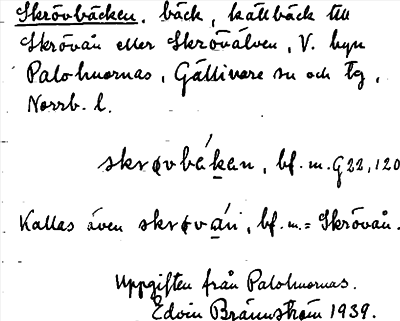 Skrövbäcken, bäck, källbäck till
Skrövån eller Skrövälven, V. byn
Palohuornas, Gällivare sn och tg,
Norrb. l.
skrøvbákan, bf. m. G22, 120
Kallas även skrøván, bf. m. = Skrövån.
Uppgiften från Palohuornas.
Edvin Brännström 1939.